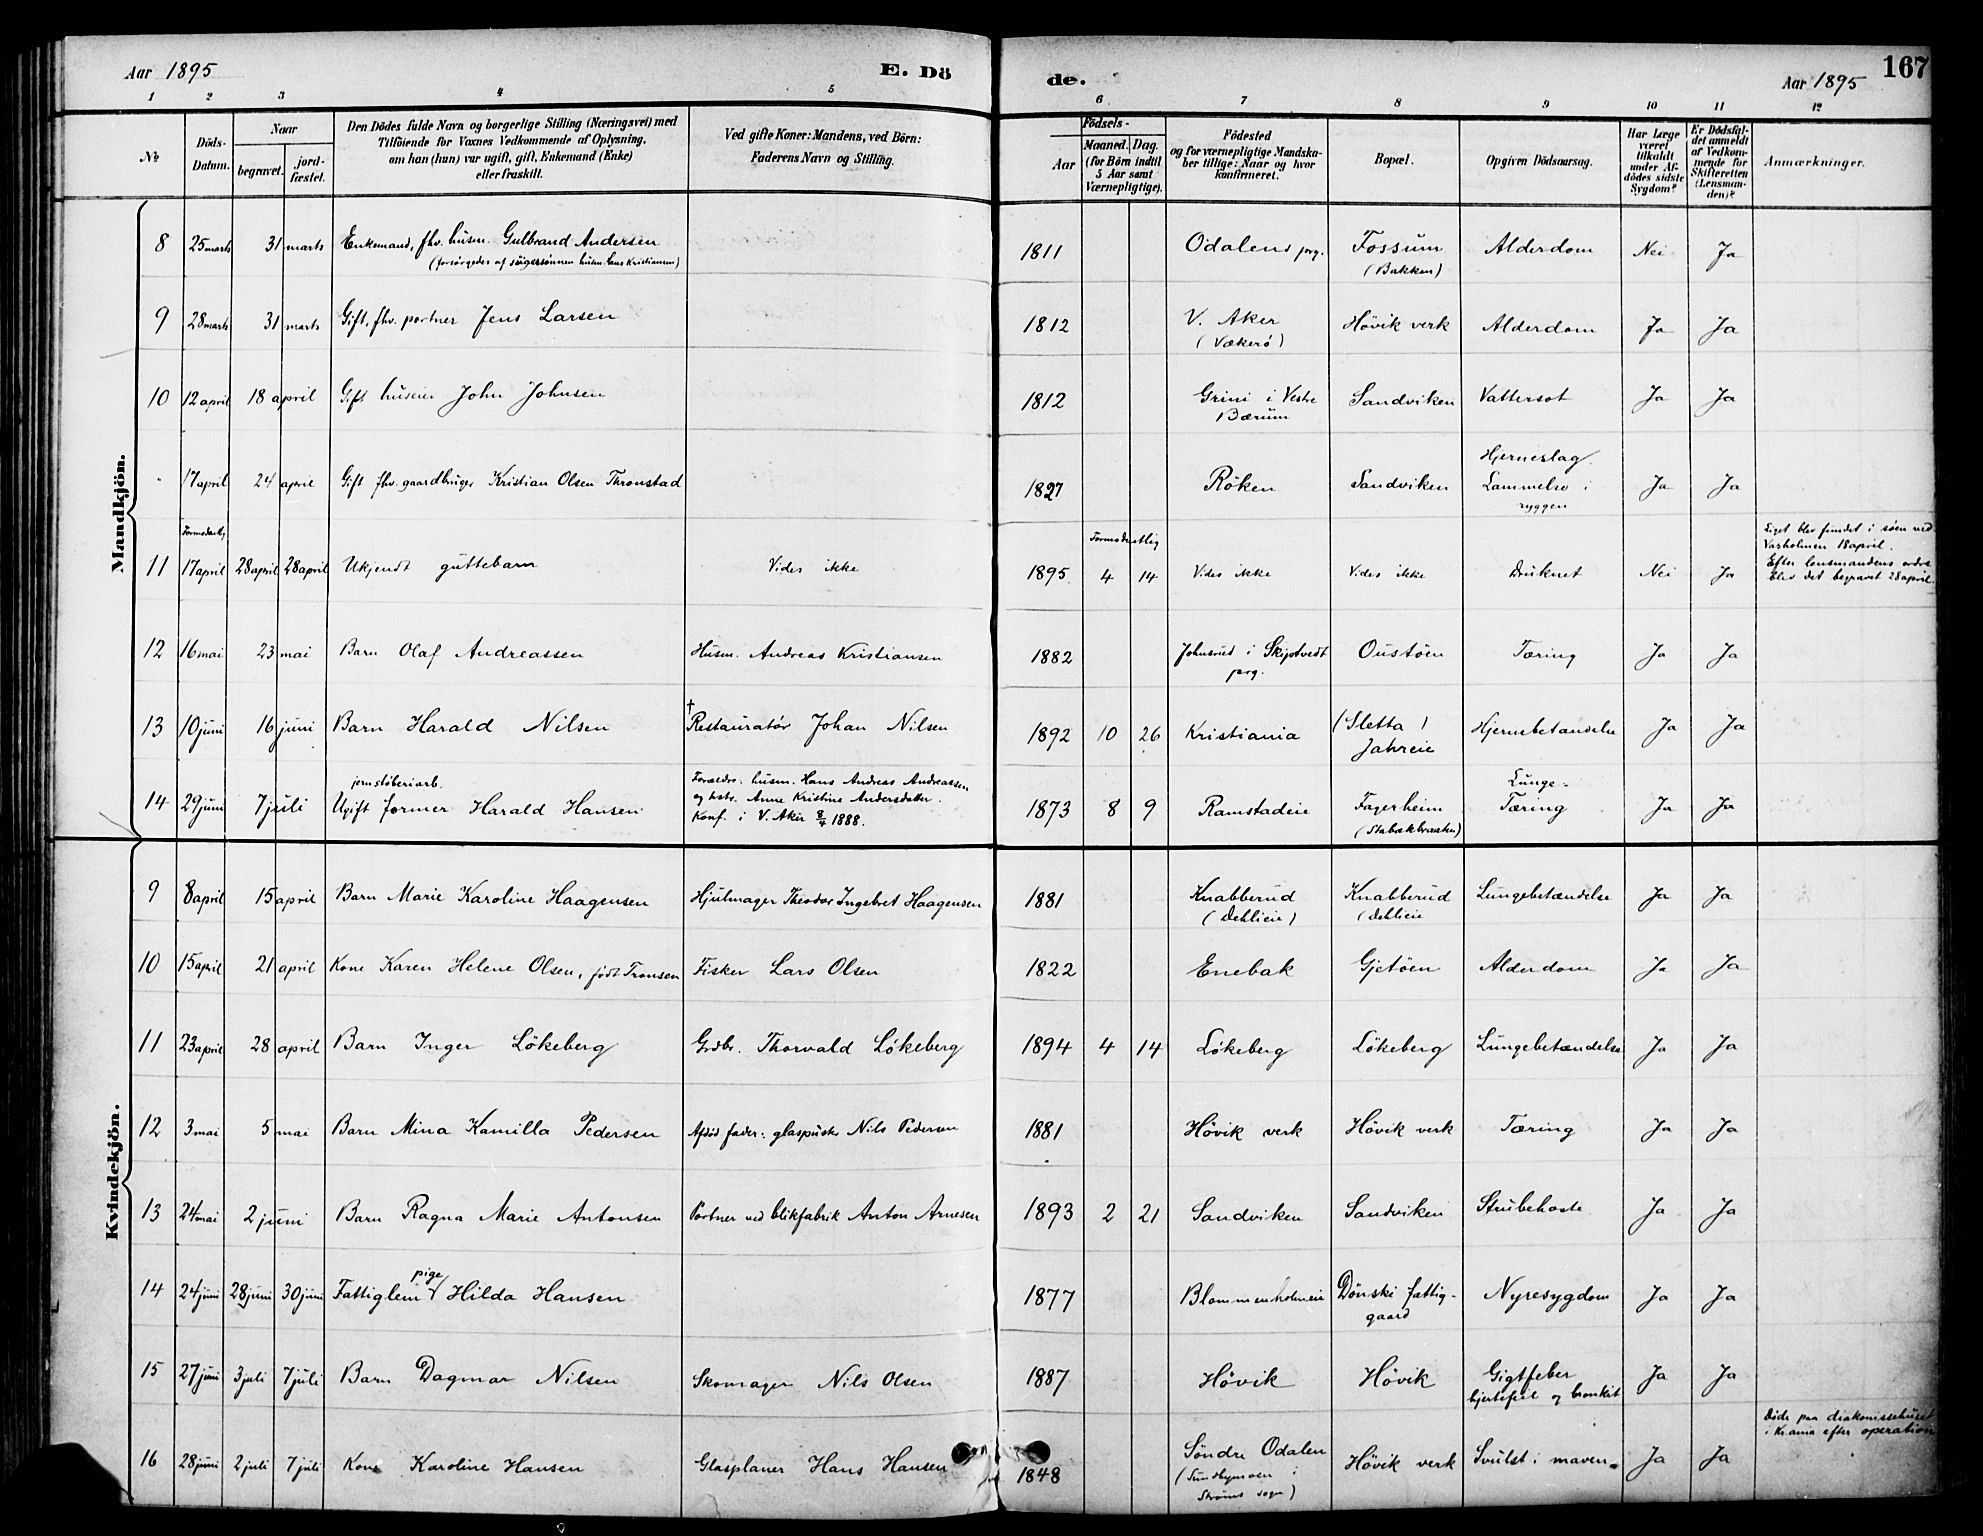 Aar 1895 E. Dö de. Aar 1895 167
1 2 3 4 5 6 7 8 9 10 11 12
No
Döds-Datum.
Naar
begravet. jordfæstet.
Den Dödes fulde Navn og borgerlige Stilling (Næringsvei) med
Tilföiende for Voxnes Vedkommende af Oplysning,
om han (hun) var ugift, gift, Enkemand (Enke)
eller fraskilt.
Ved gifte Koner: Mandens, ved Börn:
Faderens Navn og Stilling.
Födsels-
Aar Maaned. Dag.
(for Börn indtil
5 Aar samt
Værnepligtige).
Födested
og for værnepligtige Mandska-
ber tillige: Naar og hvor
konfirmeret.
Bopæl.
Opgiven Dödsaarsag.
Har Læge
været
tilkaldt
under Af-
dödes sidste
Sygdom?
Er Dödsfal-
det anmeldt
af Vedkom-
mende for
Skifteretten
(Lensman-
den)?
Anmærkninger.
Mandkjön.
8 25 marts 31 marts Enkemand, fhv. husm. Gulbrand Andersen 1811 Odalens prg. Fossum Alderdom Nei Ja
(forsörgedes af svigersönnen husm. Hans Kristiansen) (Bakken)
9 28 marts 31 marts Gift, fhv. portner Jens Larsen 1812 V. Aker Hövik verk Alderdom Ja Ja
(Vækerö)
10 12 april 18 april Gift huseier John Johnsen 1812 Grini i Vestre Sandviken Vattersot Ja Ja
Bærum
17 april 24 april Gift fhv. gaardbruger Kristian Olsen Thronstad 1827 Röken Sandviken Hjerneslag. Ja Ja
Lammelse i
ryggen
Formodentlig Formodentlig
11 17 april 28 april 28 april Ukjendt guttebarn Vides ikke 1895 4 14 Vides ikke Vides ikke Druknet Nei Ja
Liget blev fundet i söen ved
18 april.
Efter lensmandens ordre
blev det begravet 28 april.
12 16 mai 23 mai Barn Olaf Andreassen Husm. Andreas Kristiansen 1882 Johnsrud i Skiptvedt Oustöen Tæring Ja Ja
prg.
13 10 juni 16 juni Barn Harald Nilsen † Restauratör Johan Nilsen 1892 10 26 Kristiania (Sletta) Hjernebetændelse Ja Ja
Jahreie
jernstöberiarb.
14 29 juni 7 juli Ugift former Harald Hansen Forældre: husm. Hans Andreas Andreassen 1873 8 9 Ramstadeie Fagerheim Lunge- Ja Ja
og hstr. Anne Kristine Andersdatter. (Stabækbraaten) Tæring
Konf. i V. Aker 8/4 1888.
Kvindekjön.
9 8 april 15 april Barn Marie Karoline Haagensen Hjulmager Theodor Ingebret Haagensen 1881 Knabberud Knabberud Lungebetændelse Ja Ja
(Dehlieie) (Dehlieie
10 15 april 21 april Kone Karen Helene Olsen, födt Tronsen Fisker Lars Olsen 1822 Enebak Gjetöen Alderdom Ja Ja
11 23 april 28 april Barn Inger Lökeberg Grdbr. Thorvald Lökeberg 1894 4 14 Lökeberg Lökeberg Lungebetændelse Ja Ja
12 3 mai 5 mai Barn Mina Kamilla Pedersen Afdöd fader: glaspuster Nils Pedersen 1881 Hövik verk Hövik verk Tæring Ja Ja
13 24 mai 2 juni Barn Ragna Marie Antonsen Portner ved blikfabrik Anton Arnesen 1893 2 21 Sandviken Sandviken Strubehoste Ja Ja
pige
14 24 juni 28 juni 30 juni Fattiglem Hilda Hansen 1877 Blommenholmeie Dönski fattig- Nyresygdom Ja Ja
gaard
15 27 juni 3 juli 7 juli Barn Dagmar Nilsen Skomager Nils Olsen 1887 Hövik Hövik Gigtfeber Ja Ja
hjertefeil og bronkit
16 28 juni 2 juli 7 juli Kone Karoline Hansen Glasplaner Hans Hansen 1848 Söndre Odalen Hövik verk Svulst i maven Ja Ja
(Sundbymoen i
Ströms sogn)
Döde paa diakonissehuset
i Kr.ania efter operation